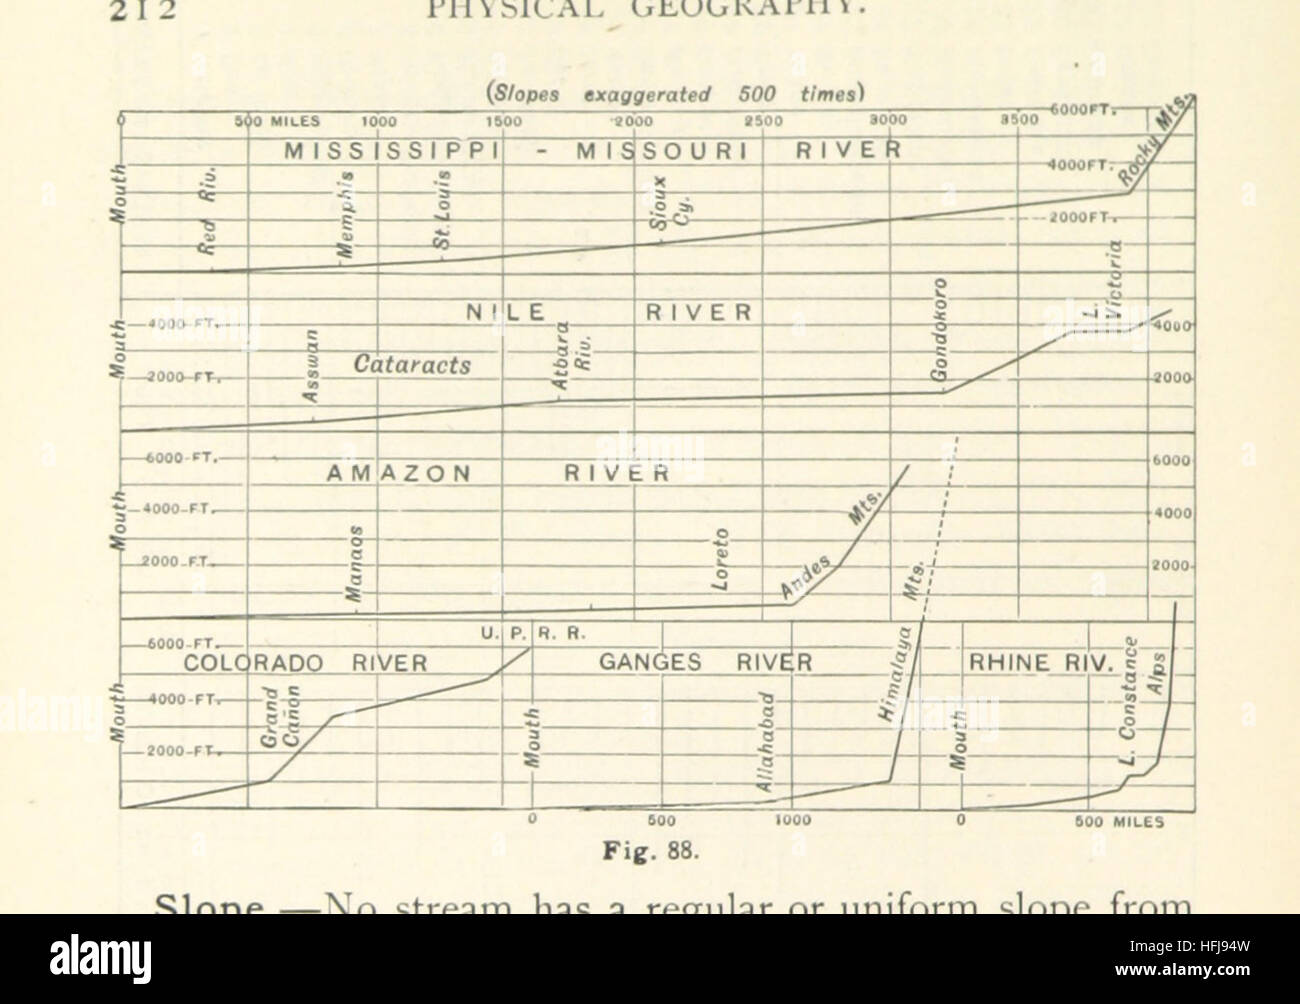 212 PHYSICAL GEOGRAPHY.
(Slopes exaggerated 500 times)
0 500 MILES 1000 1500 2000 2500 3000 3500 6000FT.
MISSISSIPPI - MISSOURI RIVER
4000FT.
2000FT.
Mouth
Red Riv.
Memphis
St. Louis
Sioux
Cy.
Rocky Mts.
NILE RIVER
Mouth
4000-FT.
2000-FT.
Asswan
Cataracts
Atbara
Riv.
Gondokoro
L.
Victoria
4000
2000
AMAZON RIVER
Mouth
6000-FT.
4000-FT.
2000-FT.
Manaos
Loreto
Andes Mts.
6000
4000
2000
COLORADO RIVER
Mouth
6000-FT.
4000-FT.
2000-FT.
Grand
Cañon
U. P. R. R.
GANGES RIVER
Mouth
Allahabad
Himalaya Mts.
RHINE RIV.
Mouth
L. Constance
Alps
0 500 1000 0 500 MILES
Fig. 88.
Slope.—No stream has a regular or uniform slope from
alamy
Image ID: HFJ94W
www.alamy.com